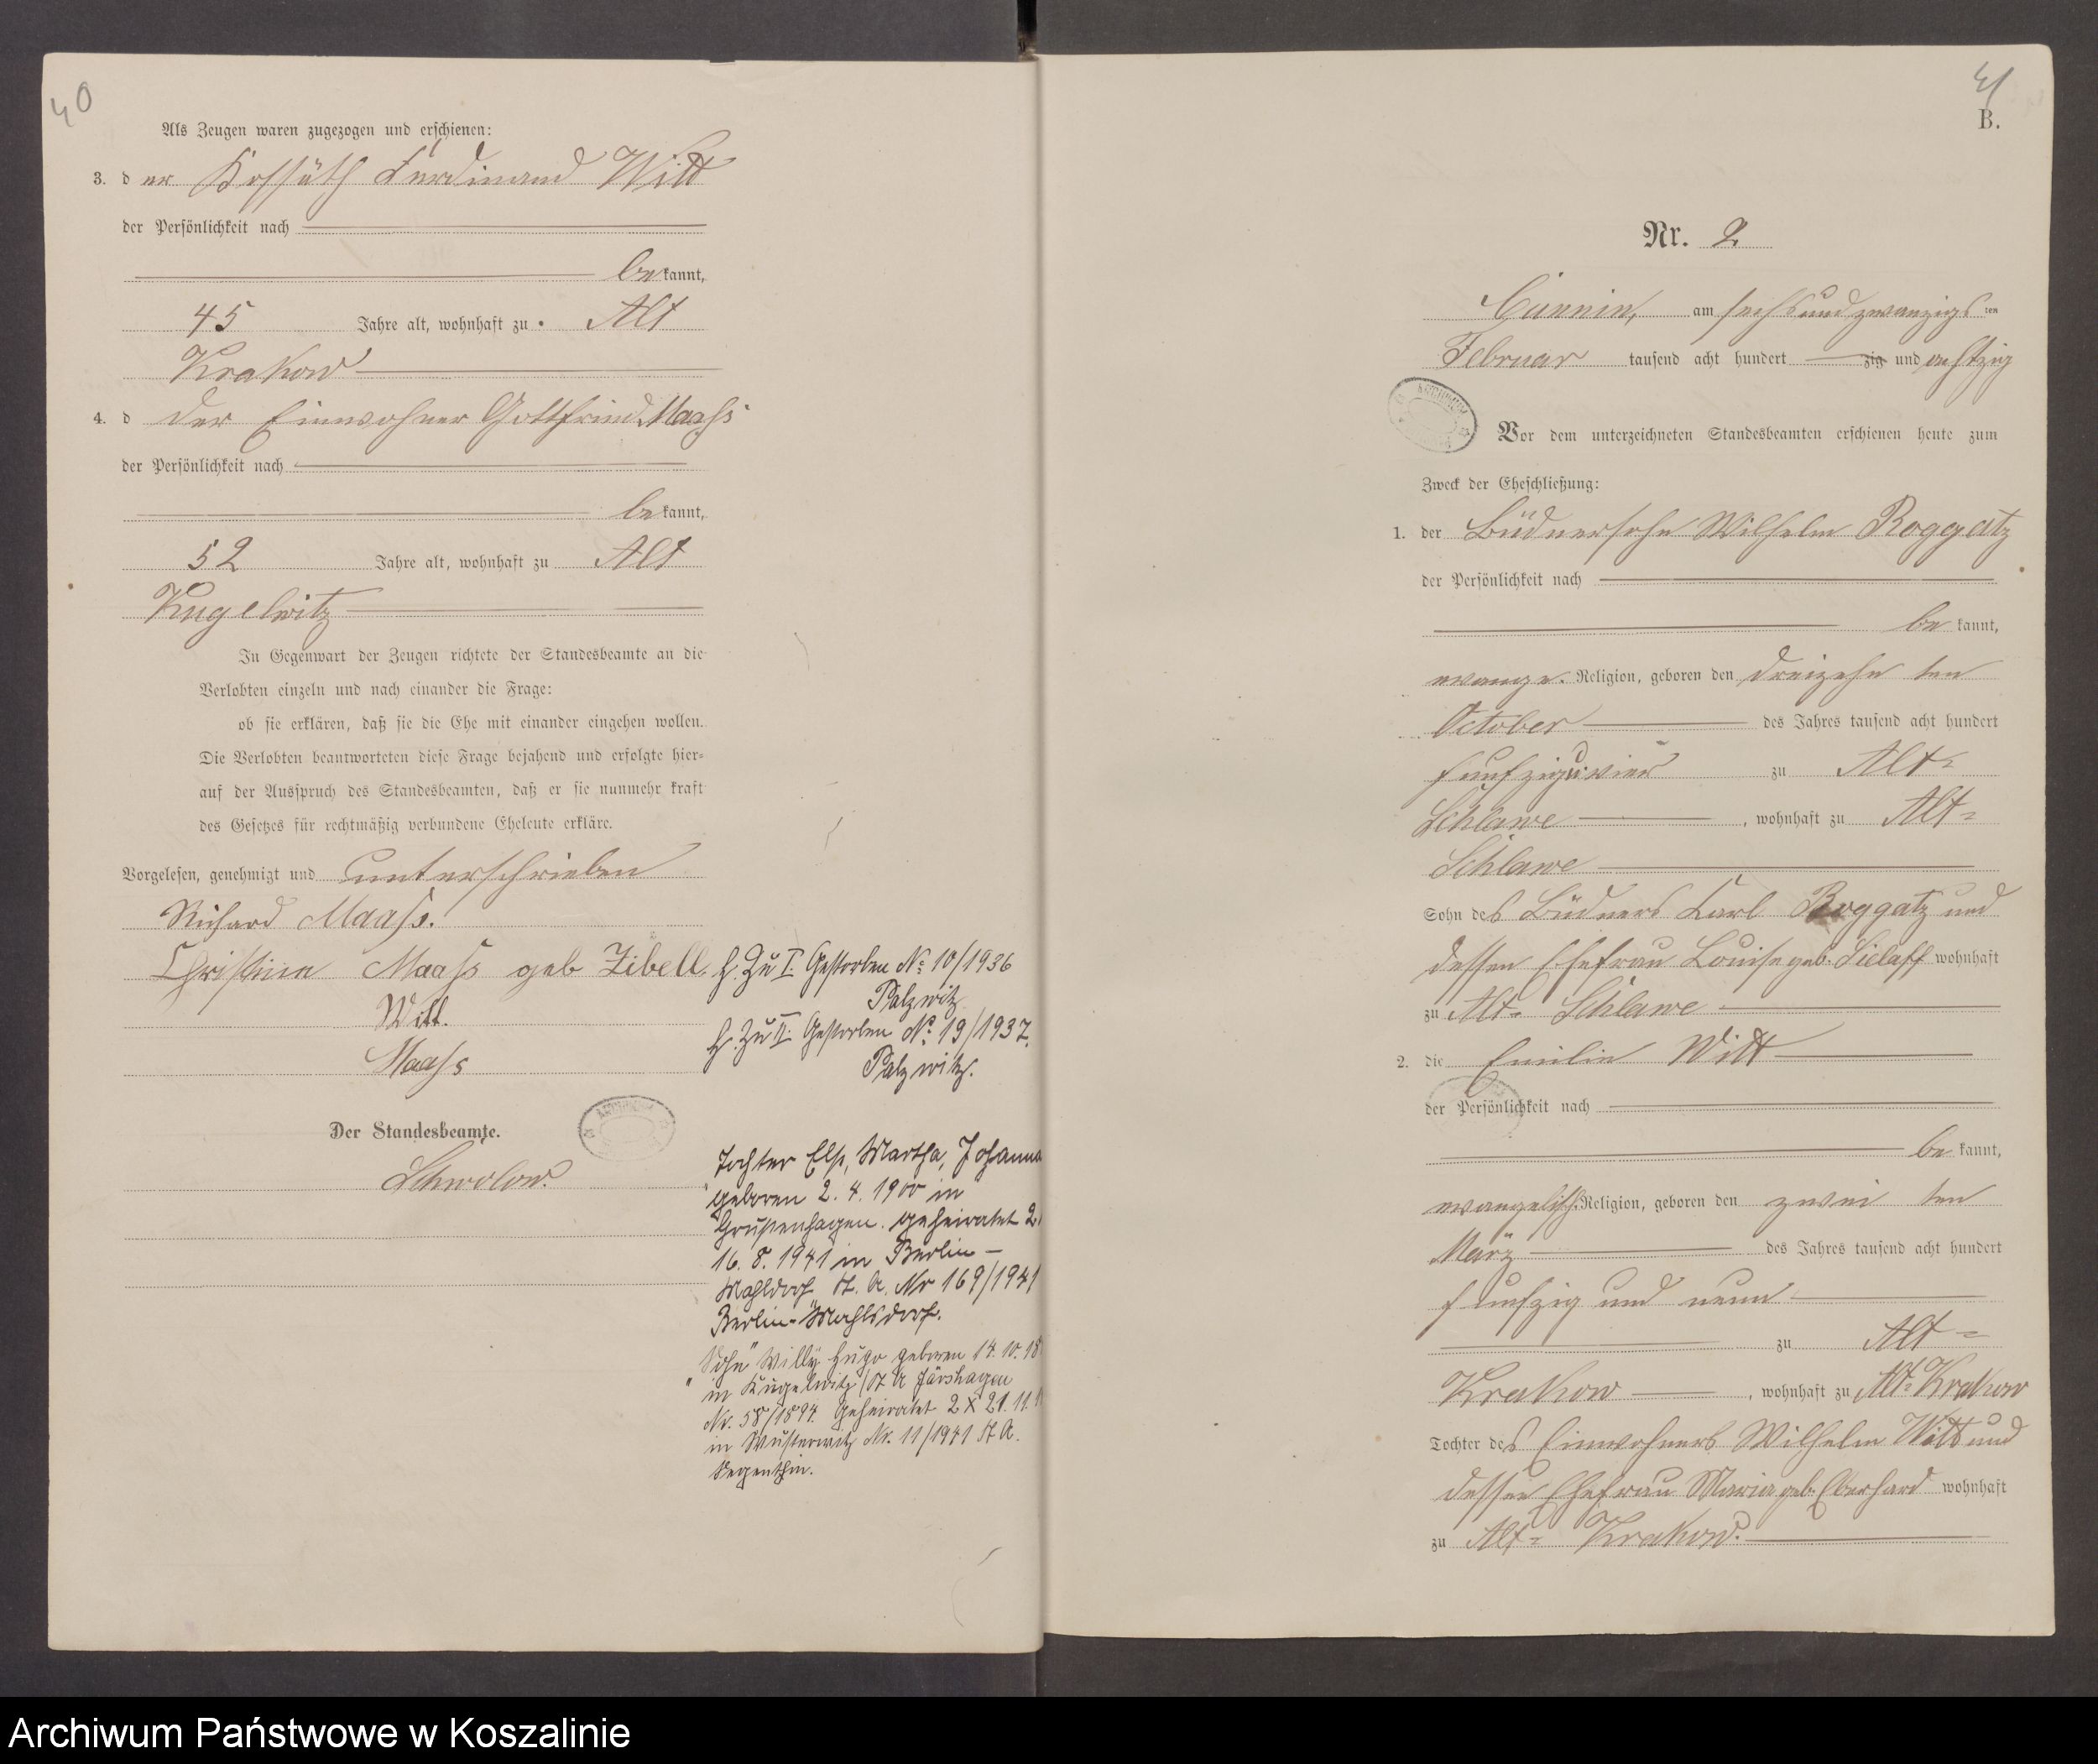 40
Als Zeugen waren zugezogen und erschienen:
3. d er Kossäth Ferdinand Witt
der Persönlichkeit nach
be kannt,
45 Jahre alt, wohnhaft zu Alt
Krakow
4. d der Einwohner Gottfried Maaß
der Persönlichkeit nach
be kannt,
52 Jahre alt, wohnhaft zu Alt
Kugelwitz
In Gegenwart der Zeugen richtete der Standesbeamte an die
Verlobten einzeln und nach einander die Frage:
ob sie erklären, daß sie die Ehe mit einander eingehen wollen.
Die Verlobten beantworteten diese Frage bejahend und erfolgte hier-
auf der Ausspruch des Standesbeamten, daß er sie nunmehr kraft
des Gesetzes für rechtmäßig verbundene Eheleute erkläre.
Vorgelesen, genehmigt und unterschrieben
Richard Maass.
Christine Maass geb Zibell.
Witt.
Maass
Der Standesbeamte.
Schwolow.
H. Zu I. Gestorben No 10/1936
Palzwitz
H. Zu II. Gestorben No 19/1937.
Palzwitz.
Tochter Else, Martha, Johanna
geboren 2. 4. 1900 in
Grupenhagen. geheiratet 2.
16. 8. 1941 in Berlin-
Mahldorf St. A. Nr 169/1941
Berlin-Mahlsdorf.
Sohn Willy Hugo geboren 14. 10. 18
in Kugelwitz (St A Järshagen
Nr. 58/1894. Geheiratet 2 X 21. 11.
in Wusterwitz Nr. 11/1941 St A.
Segenthin.
41
B.
Nr. 2
Cannin, am sechs und zwanzigs ten
Februar tausend acht hundert zig und achtzig
ARCHIWUM
Vor dem unterzeichneten Standesbeamten erschienen heute zum
Zweck der Eheschließung:
1. der Büdnersohn Wilhelm Roggatz
der Persönlichkeit nach
be kannt,
evange. Religion, geboren den dreizehn ten
October des Jahres tausend acht hundert
funfzig u. vier zu Alt-
Schlawe, wohnhaft zu Alt-
Schlawe
Sohn des Büdners Carl Roggatz und
dessen Ehefrau Louise geb. Sielaff wohnhaft
zu Alt- Schlawe
2. die Emilie Witt
der Persönlichkeit nach
be kannt,
evangelisch. Religion, geboren den zwei ten
März des Jahres tausend acht hundert
funfzig und neun
zu Alt-
Krakow, wohnhaft zu Alt-Krakow
Tochter des Einwohners Wilhelm Witt und
dessen Ehefrau Maria geb. Eberhard wohnhaft
zu Alt- Krakow.
Archiwum Państwowe w Koszalinie